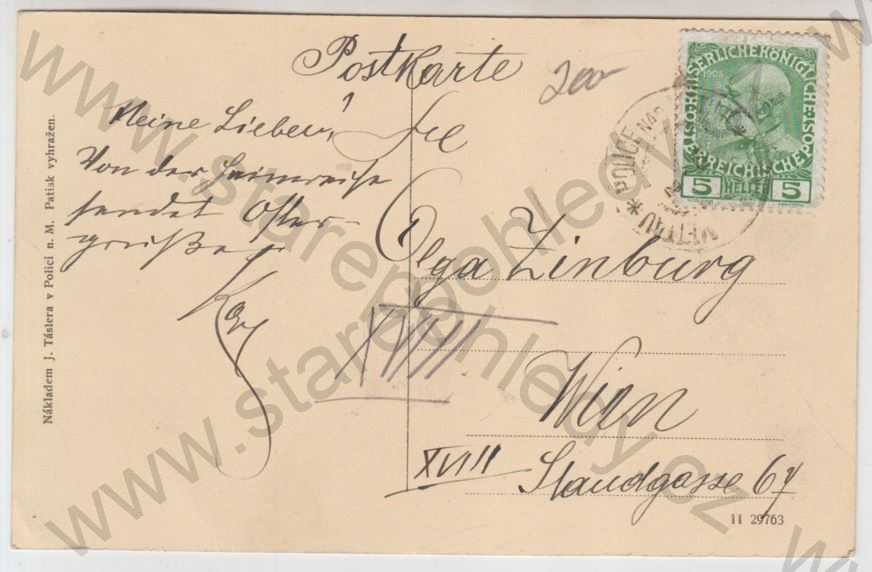 Postkarte
200-
Meine Lieben!
Von der Heimreise
sendet Oster-
grüße
Frl
Olga Zinburg
XVIII.
Wien
XVIII
Staudgasse 67
II 29763
Nákladem J. Táslera v Polici n. M. Patisk vyhražen.
1908
KAISERLICHE KÖNIGLICHE
ÖSTERREICHISCHE
5 HELLER 5
* POLICE NAD
METTAU
www.starepohledy.cz